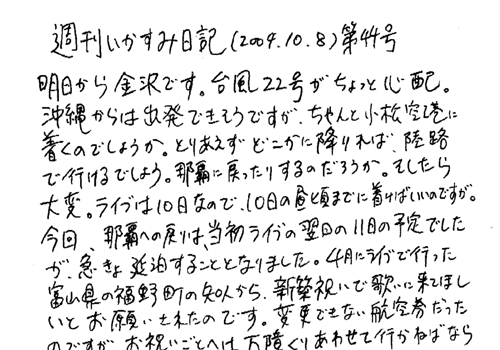 週刊いかすみ日記(2004.10.8)第44号
明日から金沢です。台風22号がちょっと心配。
沖縄からは出発できそうですが、ちゃんと小松空港に
着くのでしょうか。とりあえずどこかに降りれば、陸路
で行けるでしょう。那覇に戻ったりするのだろうか。そしたら
大変。ライブは10日なので、10日の昼頃までに着けばいいのですが。
今回、那覇への戻りは、当初ライブの翌日の11日の予定でした
が、急きょ延泊することとなりました。4月にライブで行った
富山県の福野町の知人から、新築祝いで歌いに来てほし
いとお願いされたのです。変更できない航空券だった
のですが、お祝いごとへは万障くりあわせて行かねばなら